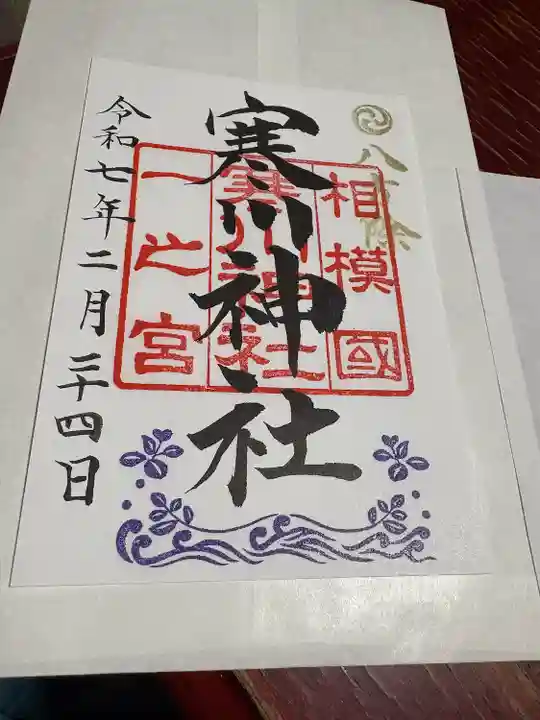 八方除
寒川神社
相模國
寒川神社
一之宮
令和七年二月二十四日